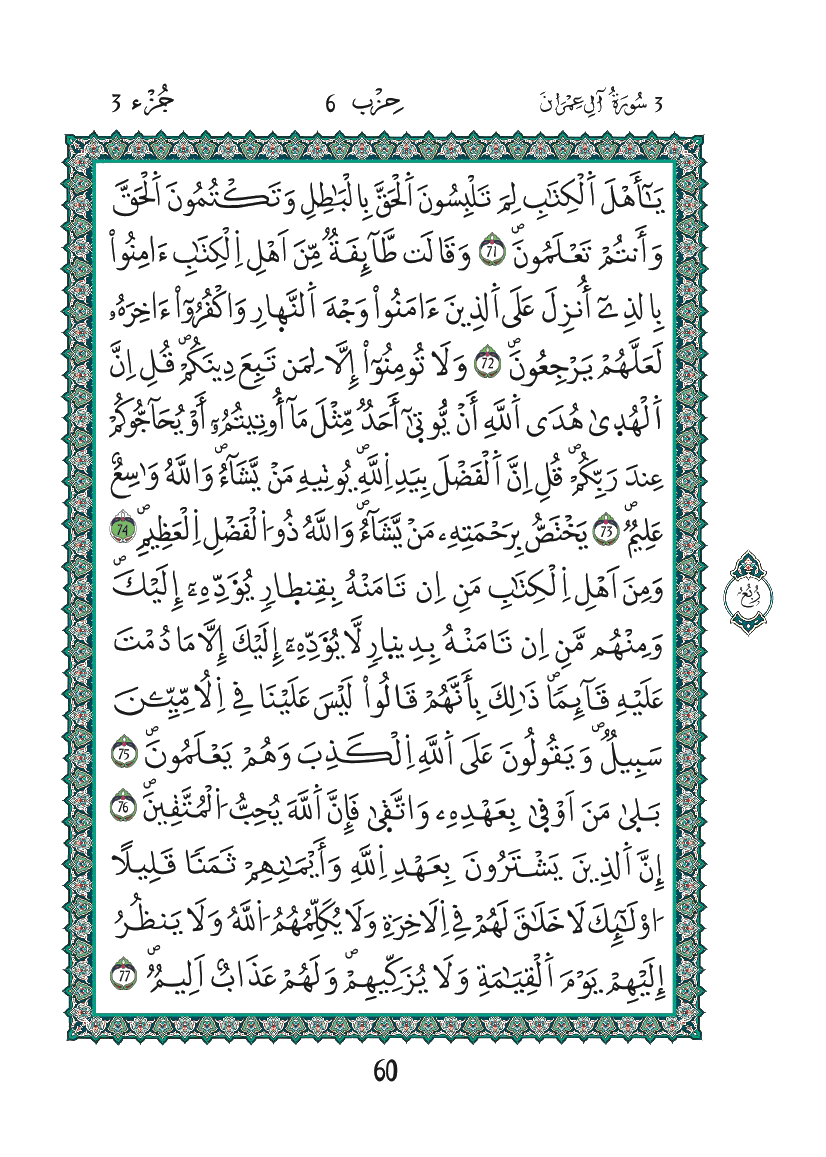 3 سُورَةُ ءَالِ عِمْرَانَ
حِزْب 6
جُزْء 3
يَٰٓأَهْلَ اَ۬لْكِتَٰبِ لِمَ تَلْبِسُونَ اَ۬لْحَقَّ بِالْبَٰطِلِ وَتَكْتُمُونَ اَ۬لْحَقَّ
وَأَنتُمْ تَعْلَمُونَۖ 71 وَقَالَت طَّآئِفَةٞ مِّنَ اَهْلِ اِ۬لْكِتَٰبِ ءَامِنُواْ
بِالذِےٓ أُنزِلَ عَلَى اَ۬لذِينَ ءَامَنُواْ وَجْهَ اَ۬لنَّهٰارِ وَاكْفُرُوٓاْ ءَاخِرَهُۥ
لَعَلَّهُمْ يَرْجِعُونَۖ 72 وَلَا تُومِنُوٓاْ إِلَّا لِمَن تَبِعَ دِينَكُمْۖ قُلِ اِنَّ
اَ۬لْهُد۪يٰ هُدَى اَ۬للَّهِ أَنْ يُّوت۪يٰٓ أَحَدٞ مِّثْلَ مَآ أُوتِيتُمُۥٓ أَوْ يُحَآجُّوكُمْ
عِندَ رَبِّكُمْۖ قُلِ اِنَّ اَ۬لْفَضْلَ بِيَدِ اِ۬للَّهِۖ يُوتِيهِ مَنْ يَّشَآءُۖ وَاللَّهُ وَٰسِعٌ
عَلِيمٞۖ 73 يَخْتَصُّ بِرَحْمَتِهِۦ مَنْ يَّشَآءُۖ وَاللَّهُ ذُو اُ۬لْفَضْلِ اِ۬لْعَظِيمِۖ 74
وَمِنَ اَهْلِ اِ۬لْكِتَٰبِ مَنِ اِن تَامَنْهُ بِقِنط۪ارٖ يُؤَدِّهِۦٓ إِلَيْكَۖ
وَمِنْهُم مَّنِ اِن تَامَنْهُ بِدِين۪ارٖ لَّا يُؤَدِّهِۦٓ إِلَيْكَ إِلَّا مَا دُمْتَ
عَلَيْهِ قَآئِماٗۖ ذَٰلِكَ بِأَنَّهُمْ قَالُواْ لَيْسَ عَلَيْنَا فِے اِ۬لُامِّيِّـۧنَ
سَبِيلٞۖ وَيَقُولُونَ عَلَى اَ۬للَّهِ اِ۬لْكَذِبَ وَهُمْ يَعْلَمُونَۖ 75
بَل۪يٰ مَنَ اَوْف۪يٰ بِعَهْدِهِۦ وَاتَّق۪يٰ فَإِنَّ اَ۬للَّهَ يُحِبُّ اُ۬لْمُتَّقِينَۖ 76
إِنَّ اَ۬لذِينَ يَشْتَرُونَ بِعَهْدِ اِ۬للَّهِ وَأَيْمَٰنِهِمْ ثَمَناٗ قَلِيلًا
ا۟وْلَٰٓئِكَ لَا خَلَٰقَ لَهُمْ فِے اِ۬لَاخِرَةِ وَلَا يُكَلِّمُهُمُ اُ۬للَّهُ وَلَا يَنظُرُ
إِلَيْهِمْ يَوْمَ اَ۬لْقِيَٰمَةِ وَلَا يُزَكِّيهِمْۖ وَلَهُمْ عَذَابٌ اَلِيمٞۖ 77
رُبُع
60